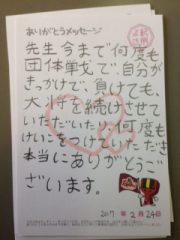 ありがとうメッセージ
先生今まで何度も
団体戦で、自分が
きっかけで、負けても、
大将を続けさせて
いただいたり何度も
けいこをつけていただき
本当にありがとうご
ざいます。
2017 年 2 月 24 日